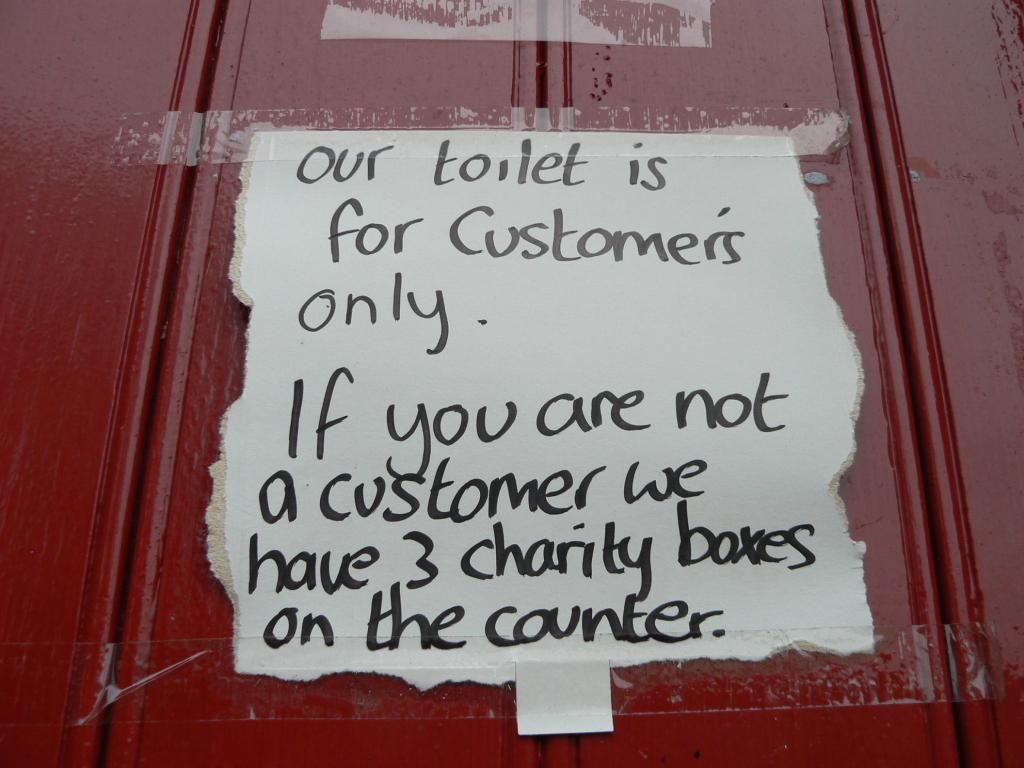 our toilet is
for Customer's
only.
If you are not
a customer we
have 3 charity boxes
on the counter.